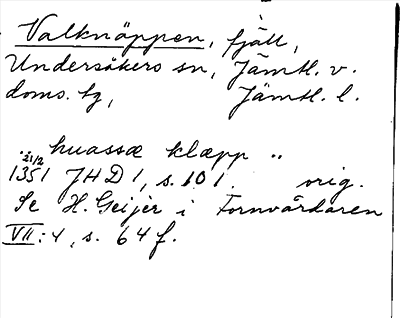 Valknäppen, fjäll,
Undersåkers sn, Jämtl. v.
doms. tg, Jämtl. l.
.. huassæ klæpp ..
21/2
1351 JHD 1, s. 101. orig.
Se H. Geijer i Fornvårdaren
VII:4, s. 64 f.